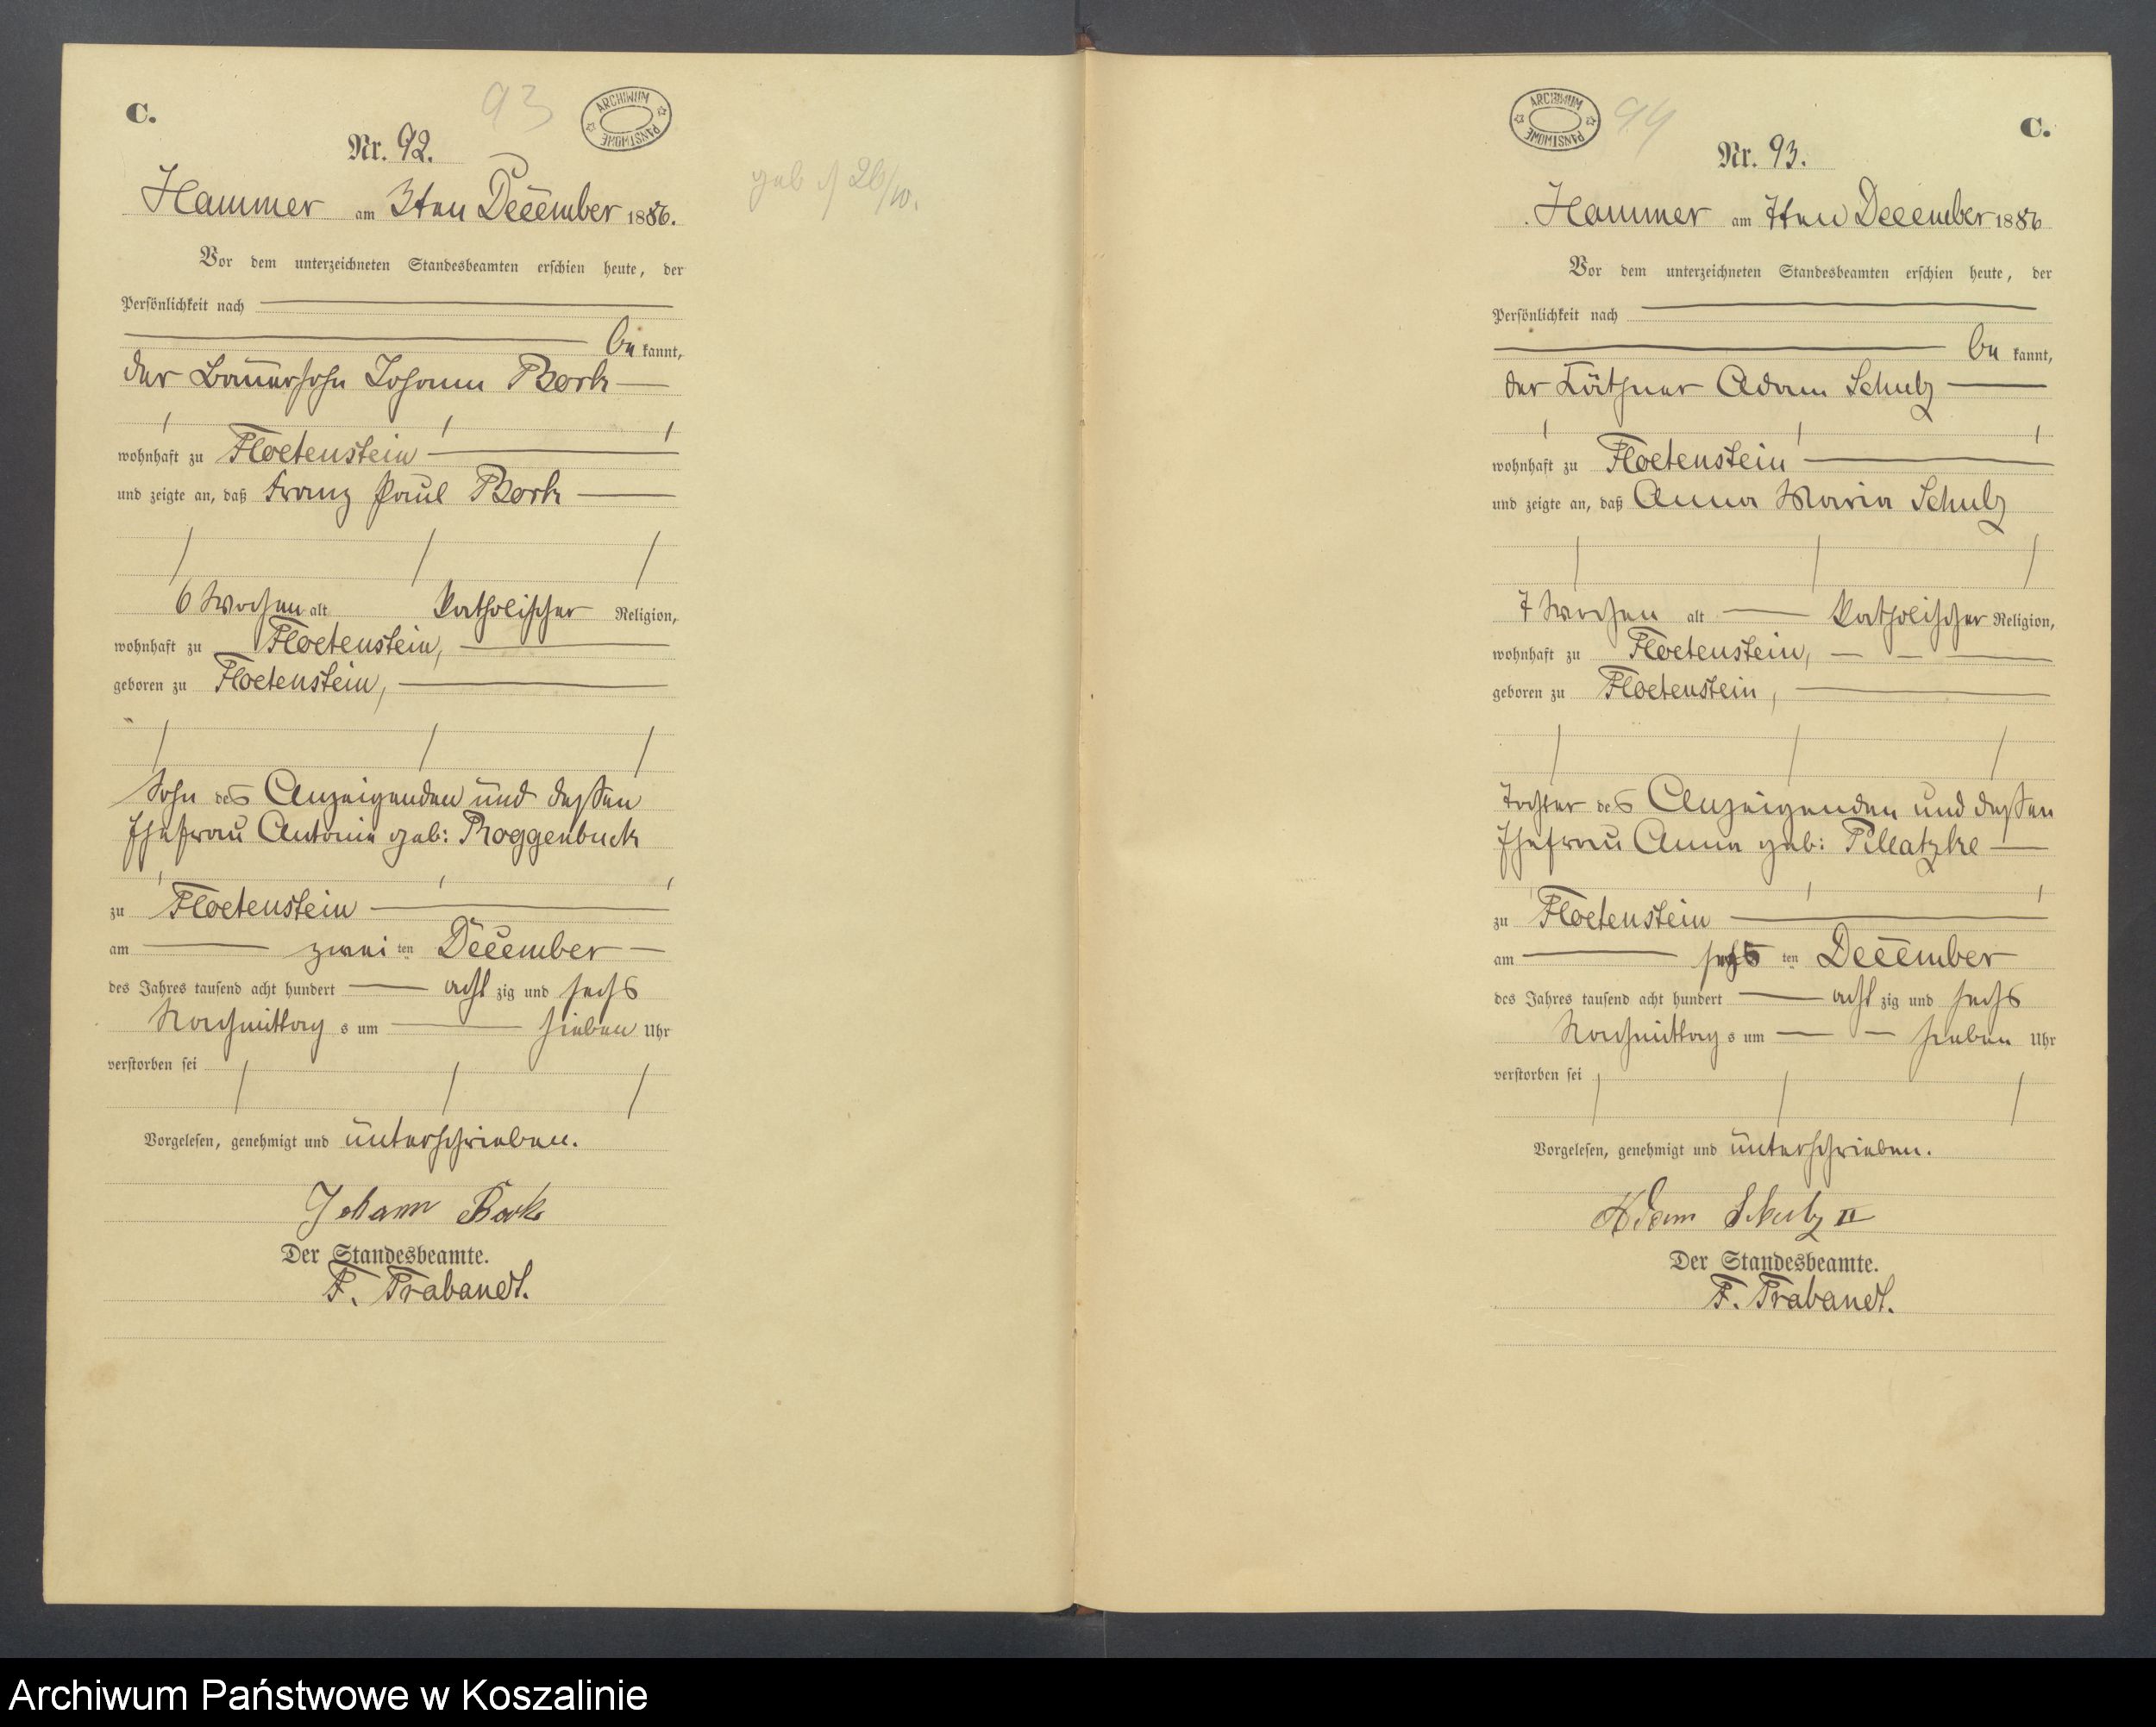 C.
93
ARCHIWUM PAŃSTWOWE
Nr. 92.
Hammer am 3ten December 1886.
Vor dem unterzeichneten Standesbeamten erschien heute, der
Persönlichkeit nach
be kannt,
der Bauersohn Johann Bork
wohnhaft zu Floetenstein
und zeigte an, daß Franz Paul Bork
6 Wochen alt katholischer Religion,
wohnhaft zu Floetenstein,
geboren zu Floetenstein,
Sohn des Anzeigenden und dessen
Ehefrau Antonie geb: Roggenbuck
zu Floetenstein
am zwei ten December
des Jahres tausend acht hundert acht zig und sechs
Nachmittag s um sieben Uhr
verstorben sei
Vorgelesen, genehmigt und unterschrieben.
Johann Bork
Der Standesbeamte.
F. Trabandt.
geb 26/10.
ARCHIWUM PAŃSTWOWE
94
C.
Nr. 93.
Hammer am 7ten December 1886
Vor dem unterzeichneten Standesbeamten erschien heute, der
Persönlichkeit nach
be kannt,
der Käthner Adam Schulz
wohnhaft zu Floetenstein
und zeigte an, daß Anna Maria Schulz
7 Wochen alt katholischer Religion,
wohnhaft zu Floetenstein,
geboren zu Floetenstein,
Tochter des Anzeigenden und dessen
Ehefrau Anna geb: Pillatzke
zu Floetenstein
am sechs ten December
des Jahres tausend acht hundert acht zig und sechs
Nachmittag s um sieben Uhr
verstorben sei
Vorgelesen, genehmigt und unterschrieben.
Adam Schulz II
Der Standesbeamte.
F. Trabandt.
Archiwum Państwowe w Koszalinie